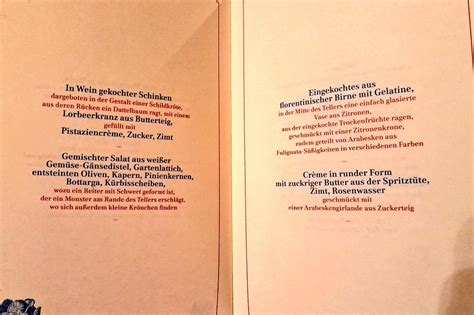 In Wein gekochter Schinken
dargeboten in der Gestalt einer Schildkröte,
aus deren Rücken ein Dattelbaum ragt, mit einem
Lorbeerkranz aus Butterteig,
gefüllt mit
Pistaziencrème, Zucker, Zimt
Gemischter Salat aus weißer
Gemüse-Gänsedistel, Gartenlattich,
entsteinten Oliven, Kapern, Pinienkernen,
Bottarga, Kürbisscheiben,
wozu ein Reiter mit Schwert geformt ist,
der ein Monster am Rande des Tellers erschlägt,
wo sich außerdem kleine Krönchen finden
Eingekochtes aus
florentinischer Birne mit Gelatine,
in der Mitte des Tellers eine einfach glasierte
Vase aus Zitronen,
aus der eingekochte Trockenfrüchte ragen,
geschmückt mit einer Zitronenkrone,
zudem geteilt von Arabesken aus
Fulignata-Süßigkeiten in verschiedenen Farben
Crème in runder Form
mit zuckriger Butter aus der Spritztüte,
Zimt, Rosenwasser
geschmückt mit
einer Arabeskengirlande aus Zuckerteig